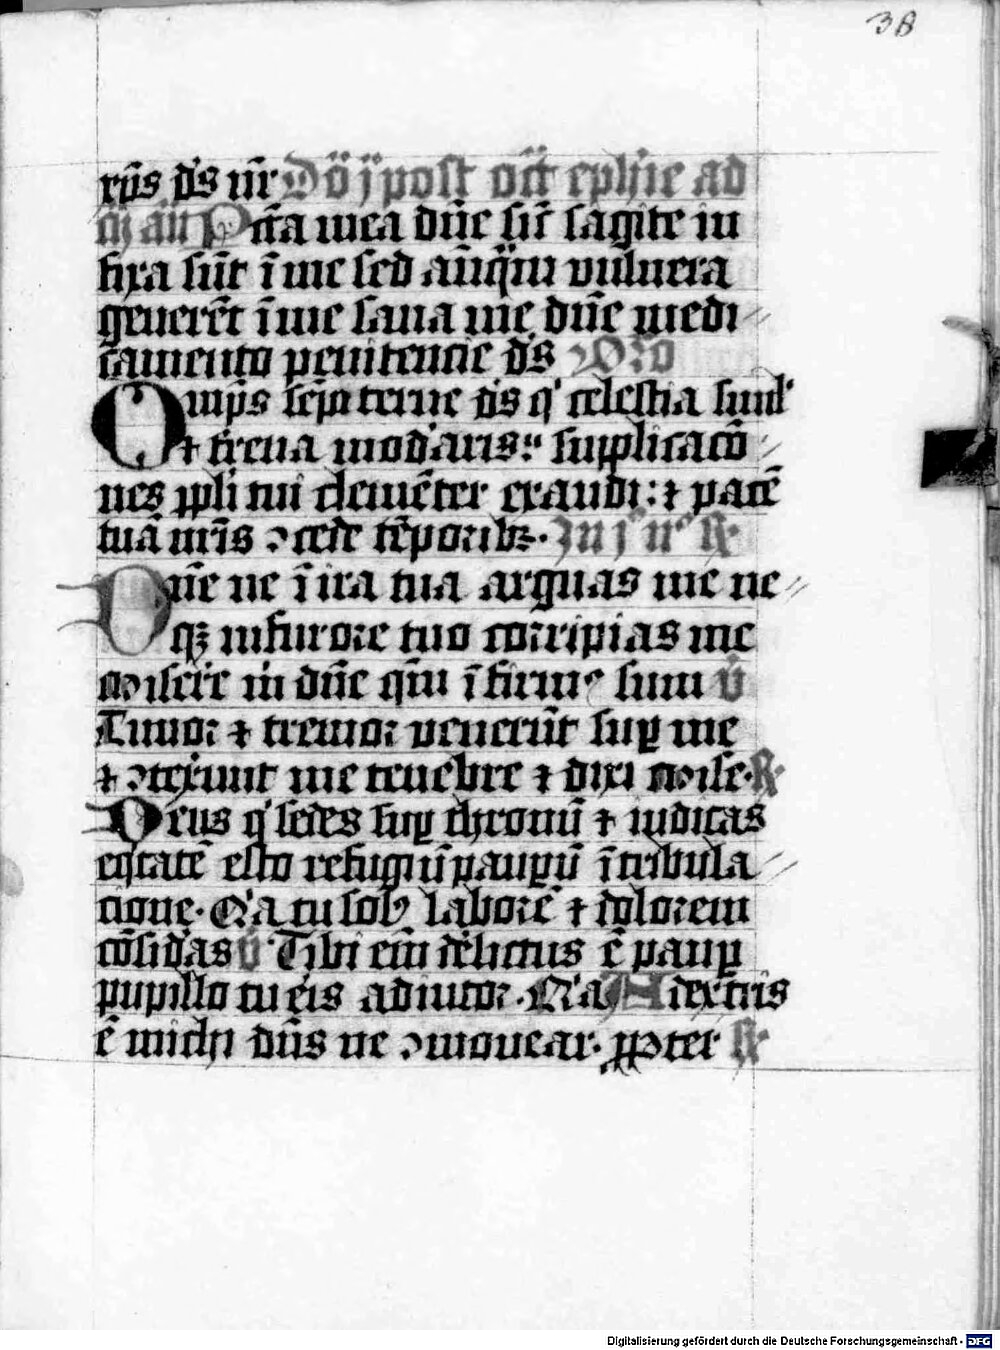 38
rũs dˀs nr̃ Dõ ij post oct̃ ephˀie ad
m̃ añ Pctã mea dñe sit̃ sagite in
fixa sũt ĩ me sed añq̃m vulnera
generẽt ĩ me sana me dñe medi
camento penitencie dˀs Oro
Omp̃s sẽpiterne dˀs qˀ celestia simlˀ
⁊ tˀrena modˀaris: supplicacõ
nes ppli tui clemẽter exaudi: ⁊ pacẽ
tuã nrĩs ꝯcede tẽporibꝫ. In jº nº ℟.
Dñe ne ĩ ira tua arguas me ne
qꝫ in furore tuo corripias me
Miserˀe mˀ dñe qm̃ ĩfirmꝰ sum v̇
Timor ⁊ tremor venerũt suꝑ me
⁊ ꝯtexˀunt me tenebre ⁊ dixi Mise. ℟.
Deus qˀ sedes suꝑ thronũ ⁊ iudicas
eq̃tatẽ esto refugiũ pauꝑũ ĩ tribula
cione. Qˀa tu solꝰ laborẽ ⁊ dolorem
cõsidˀas v̇ Tibi em̃ dˀelictus ẽ pauꝑ
pupillo tu eˀis adiutor. Qˀa A dextrˀis
ẽ michi dñs ne ꝯmovear. ꝓpter ℟.
Digitalisierung gefördert durch die Deutsche Forschungsgemeinschaft - DFG